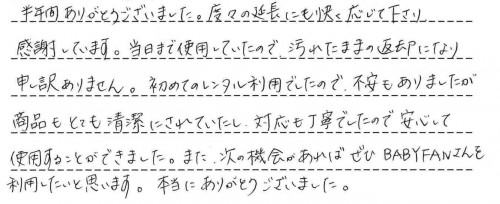 半年間ありがとうございました。度々の延長にも快く応じて下さり
感謝しています。当日まで使用していたので、汚れたままの返却になり
申し訳ありません。初めてのレンタル利用でしたので、不安もありましたが
商品もとても清潔にされていたし、対応も丁寧でしたので安心して
使用することができました。また、次の機会があればぜひBABYFANさんを
利用したいと思います。本当にありがとうございました。